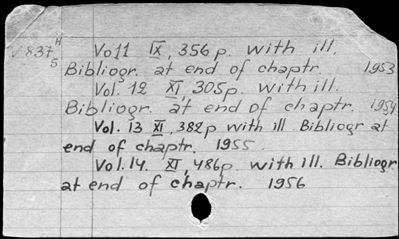 V837 H Vol1 IX, 356p. with ill.
5
Bibliogr. at end of chaptr. 1953
Vol. 12 XI, 305p. with ill.
Bibliogr. at end of chaptr. 1954
Vol. 13 XI, 382p with ill. Bibliogr at
end of chaptr. 1955.
Vol. 14. XI, 486p. with ill. Bibliogr
at end of chaptr. 1956